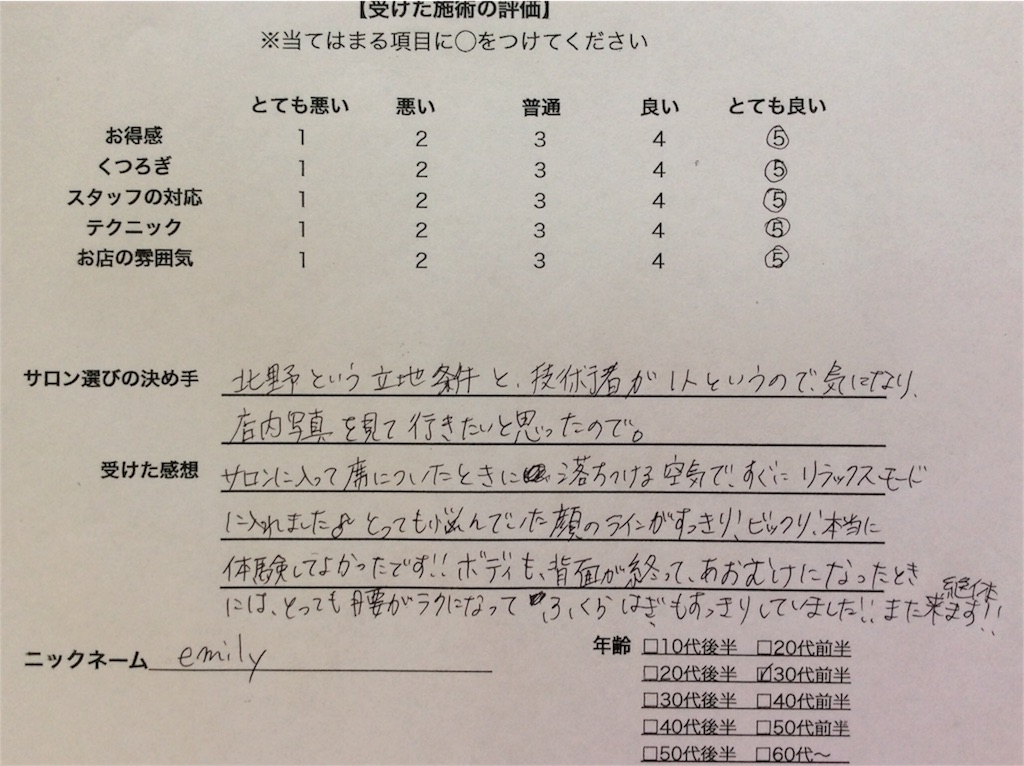 【受けた施術の評価】
※当てはまる項目に○をつけてください
とても悪い 悪い 普通 良い とても良い
お得感 1 2 3 4 5
くつろぎ 1 2 3 4 5
スタッフの対応 1 2 3 4 5
テクニック 1 2 3 4 5
お店の雰囲気 1 2 3 4 5
サロン選びの決め手 北野という立地条件と、技術者が1人というので気になり、
店内写真を見て行きたいと思ったので。
受けた感想 サロンに入って席についたときに落ちつける空気で、すぐにリラックスモード
に入れました♪ とっても悩んでいた顔のラインがすっきり!ビックリ!本当に
体験してよかったです!!ボディも、背面が終って、あおむけになったとき
には、とっても腰がラクになってふくらはぎもすっきりしていました!!また絶体来ます!!
ニックネーム emily
年齢 □10代後半 □20代前半
□20代後半 ☑30代前半
□30代後半 □40代前半
□40代後半 □50代前半
□50代後半 □60代〜